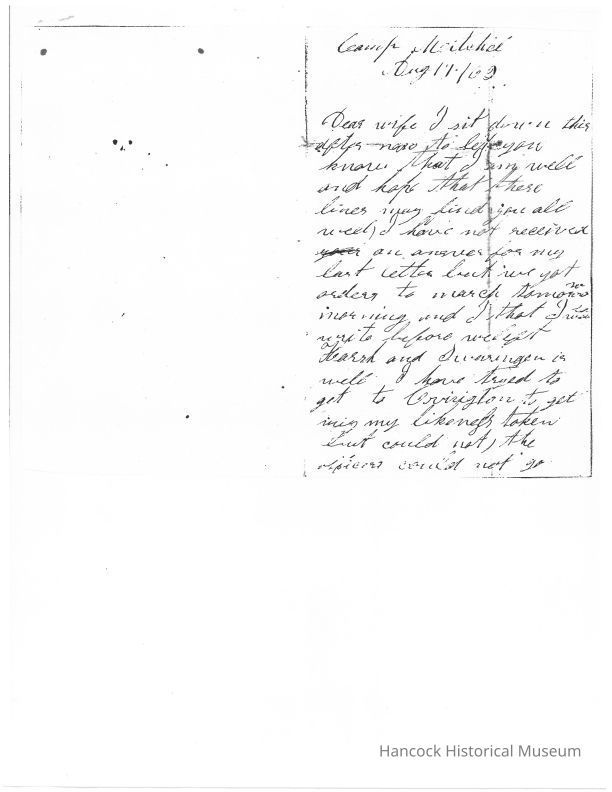 Camp Mitchel
Aug 17/63
Dear wife I sit down this
after noon to let you
know that I am well
and hope that these
lines may find you all
well, I have not received
your an answer for my
last letter but we got
orders to march tomorrow
morning and I that I would
write before we left
and Swaringen is
well I have tryed to
get to Covington to get
my likeness taken
but could not, the
oficers could not go
Hancock Historical Museum